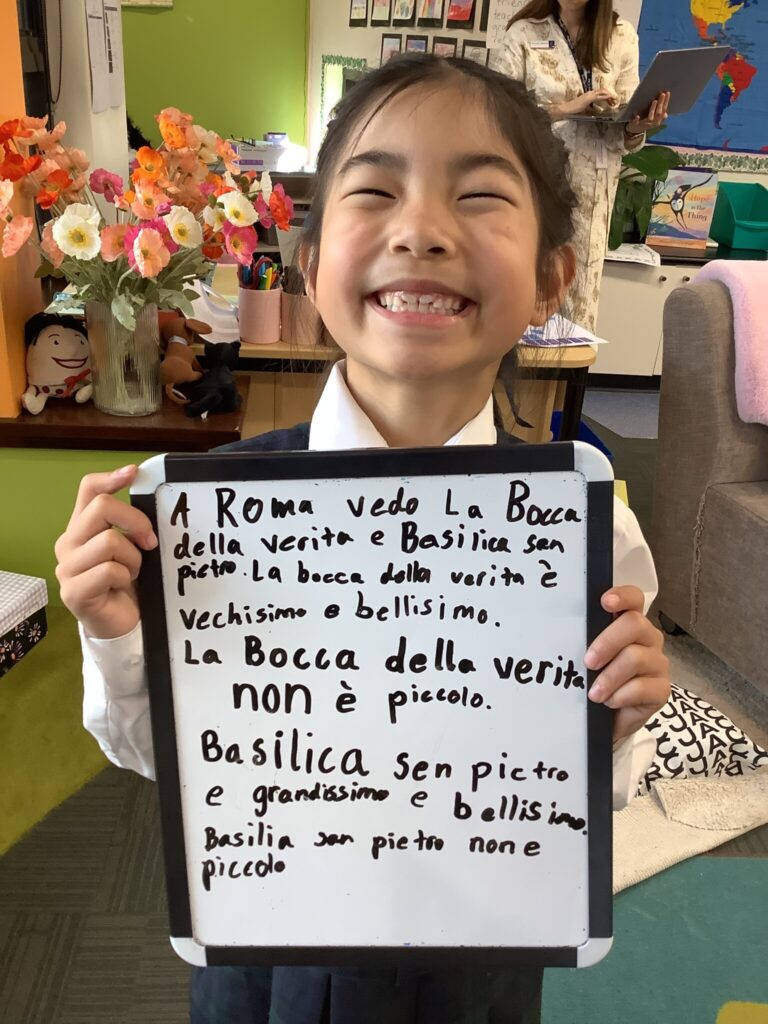 A Roma vedo La Bocca
della verita e Basilica san
pietro. La bocca della verita è
vechisimo e bellisimo.
La Bocca della verita
non è piccolo.
Basilica sen pietro
e grandissimo e bellisimo.
Basilia san pietro non e
piccolo
Hope
is The
Thing